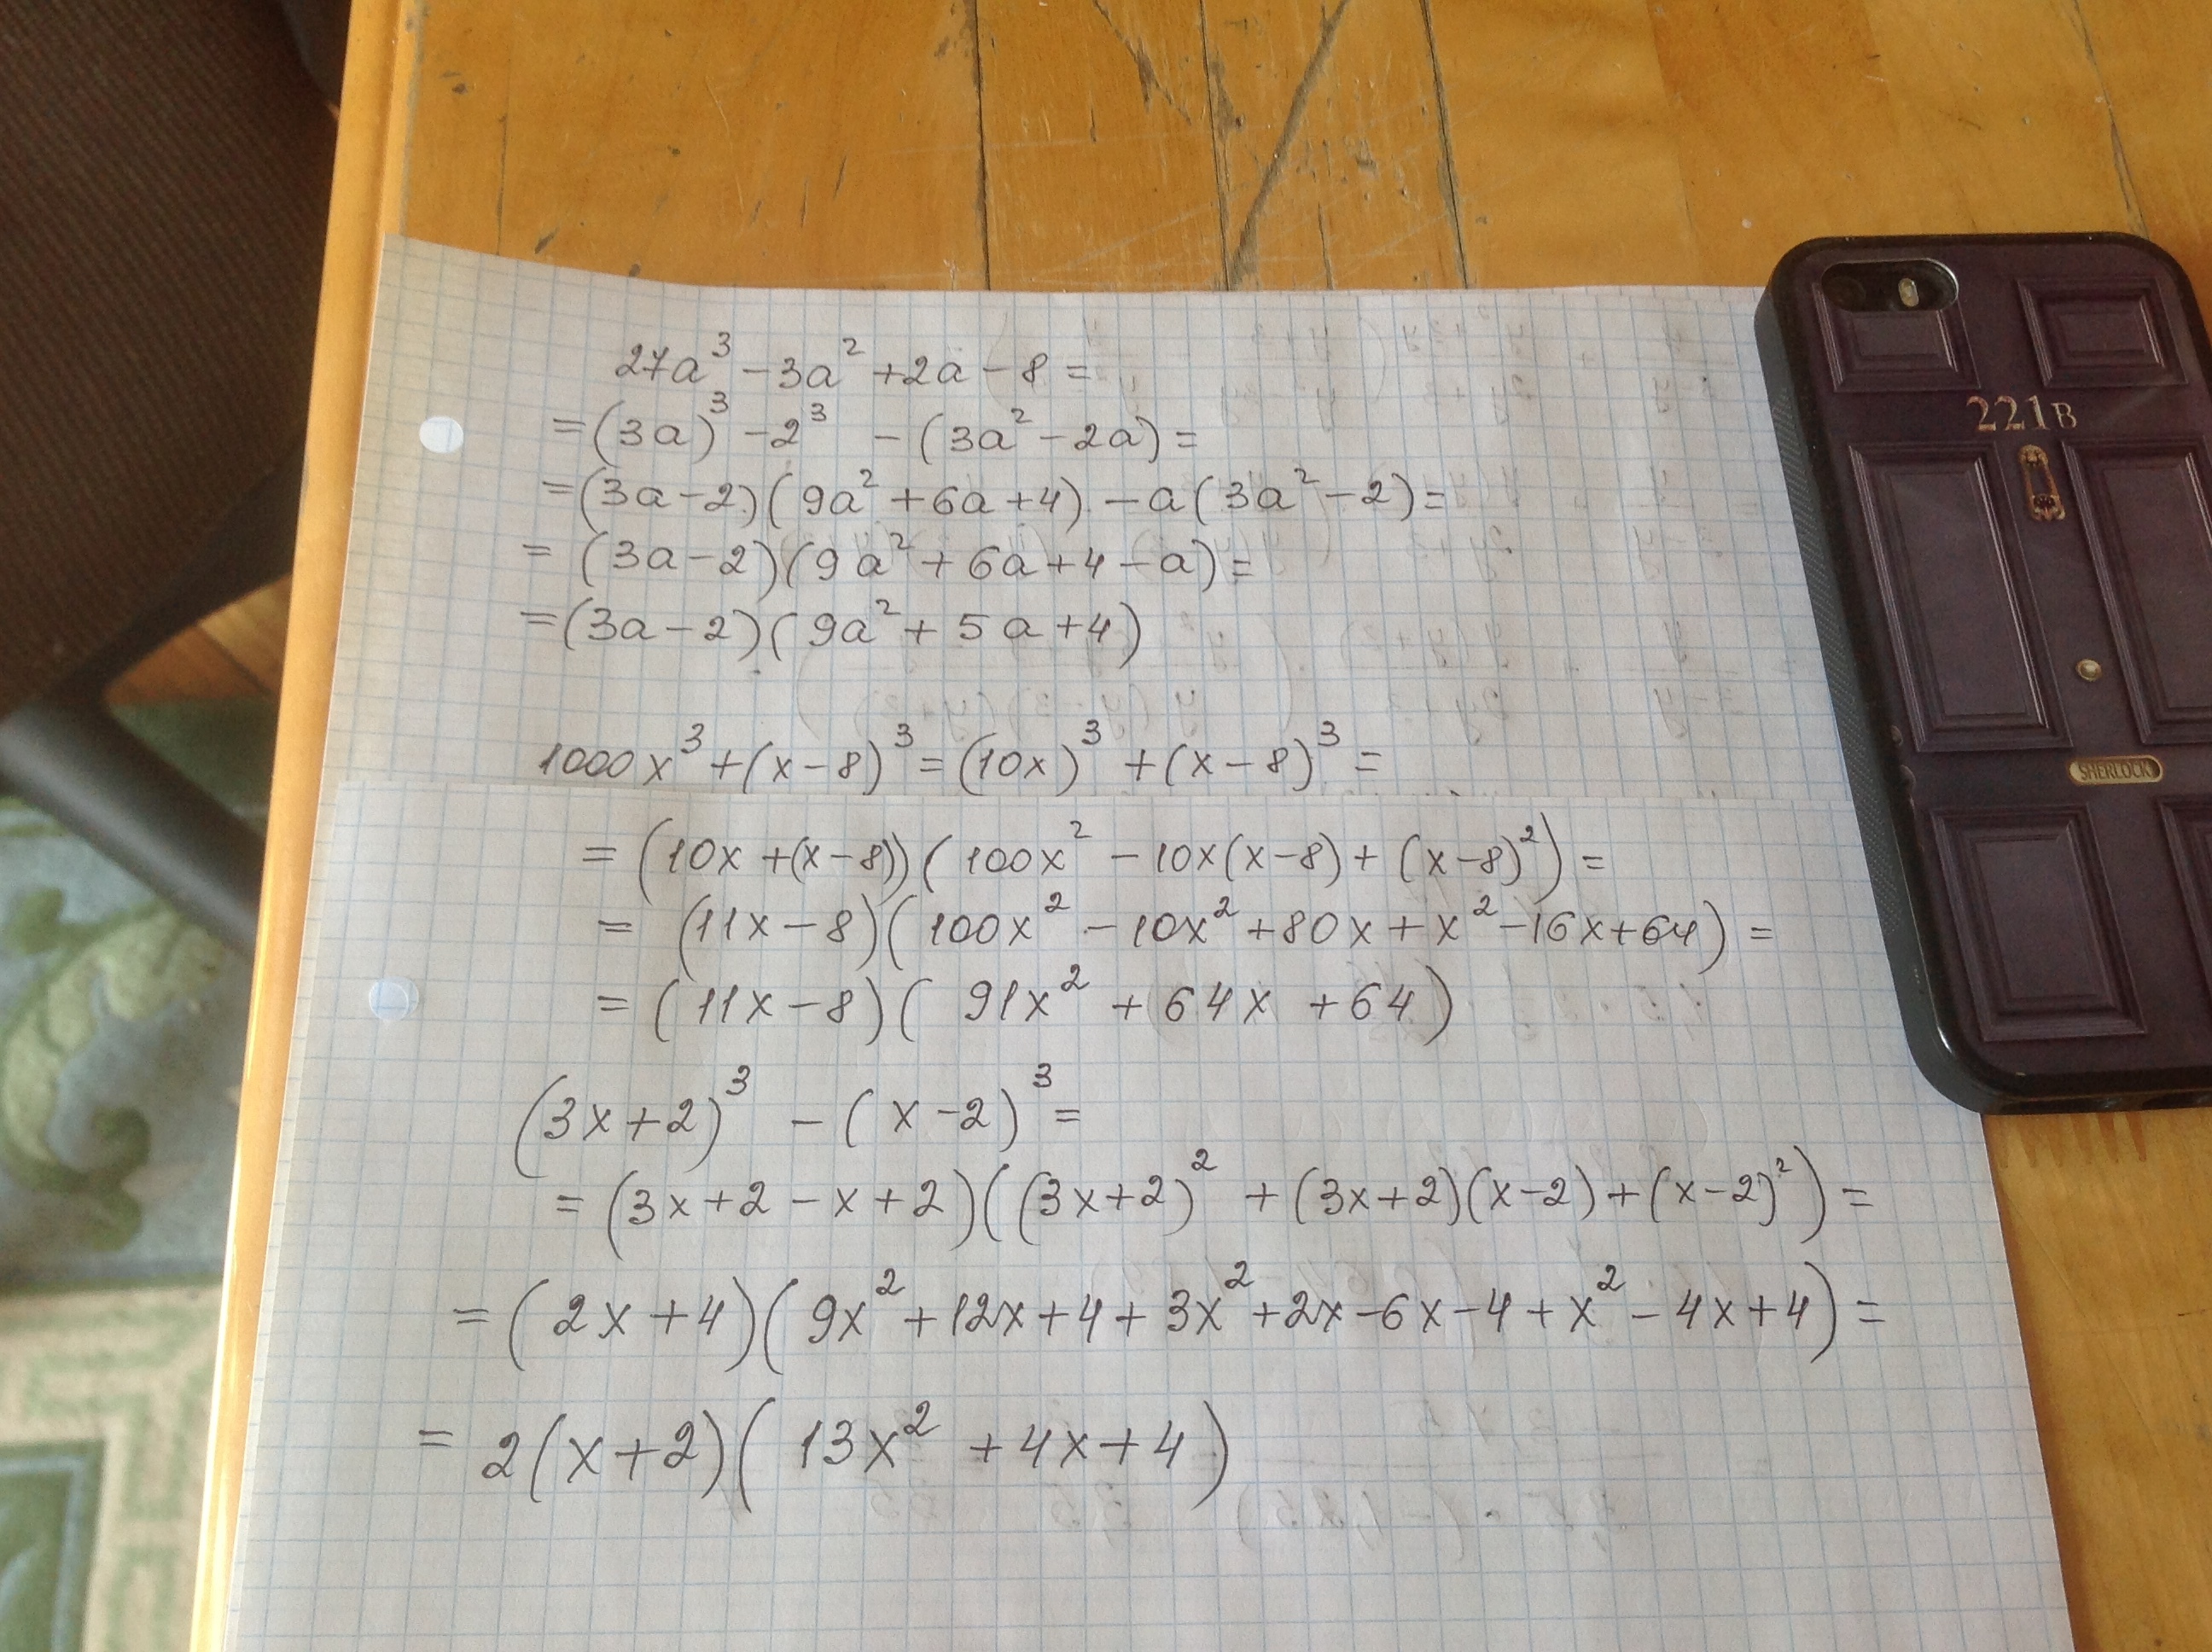 27a³ - 3a² + 2a - 8 =
= (3a)³ - 2³ - (3a² - 2a) =
= (3a - 2)(9a² + 6a + 4) - a(3a² - 2) =
= (3a - 2)(9a² + 6a + 4 - a) =
= (3a - 2)(9a² + 5a + 4)
1000x³ + (x - 8)³ = (10x)³ + (x - 8)³ =
= (10x + (x - 8))(100x² - 10x(x - 8) + (x - 8)²) =
= (11x - 8)(100x² - 10x² + 80x + x² - 16x + 64) =
= (11x - 8)(91x² + 64x + 64)
(3x + 2)³ - (x - 2)³ =
= (3x + 2 - x + 2)((3x + 2)² + (3x + 2)(x - 2) + (x - 2)²) =
= (2x + 4)(9x² + 12x + 4 + 3x² + 2x - 6x - 4 + x² - 4x + 4) =
= 2(x + 2)(13x² + 4x + 4)
221B
SHERLOCK